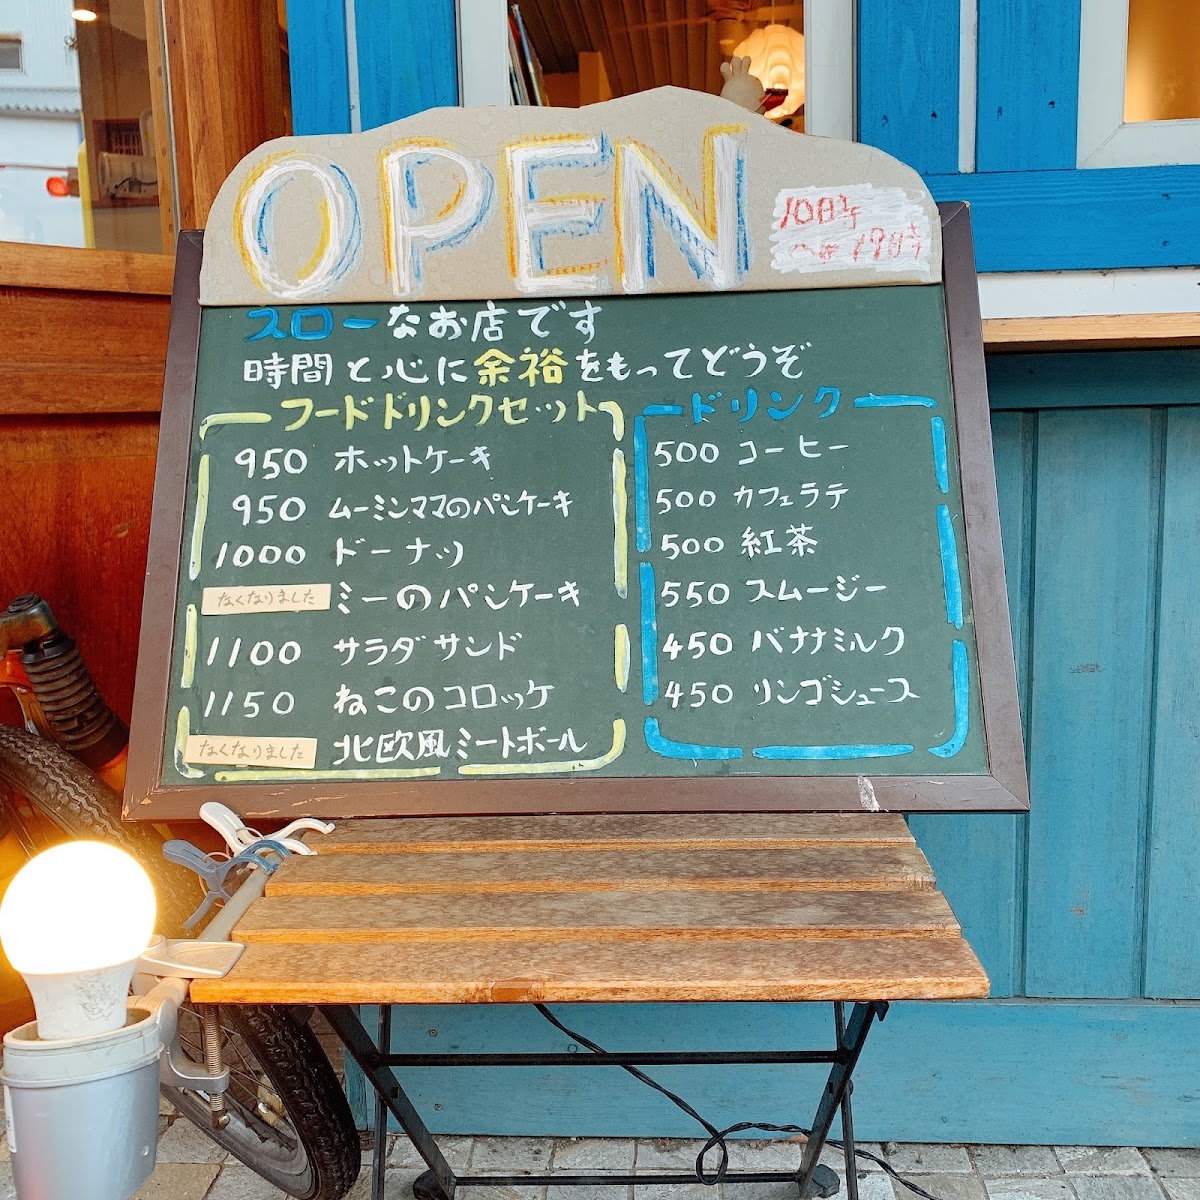 OPEN
10時
〜19時
スローなお店です
時間と心に余裕をもってどうぞ
フードドリンクセット
950 ホットケーキ
950 ムーミンママのパンケーキ
1000 ドーナツ
なくなりました ミーのパンケーキ
1100 サラダサンド
1150 ねこのコロッケ
なくなりました 北欧風ミートボール
ドリンク
500 コーヒー
500 カフェラテ
500 紅茶
550 スムージー
450 バナナミルク
450 リンゴジュース